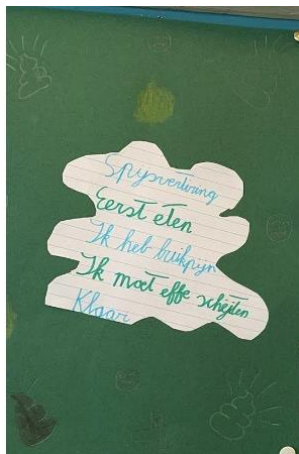 Spysvertiring
Eerst eten
Ik heb buikpijn
Ik moet effe schejten
Klaar